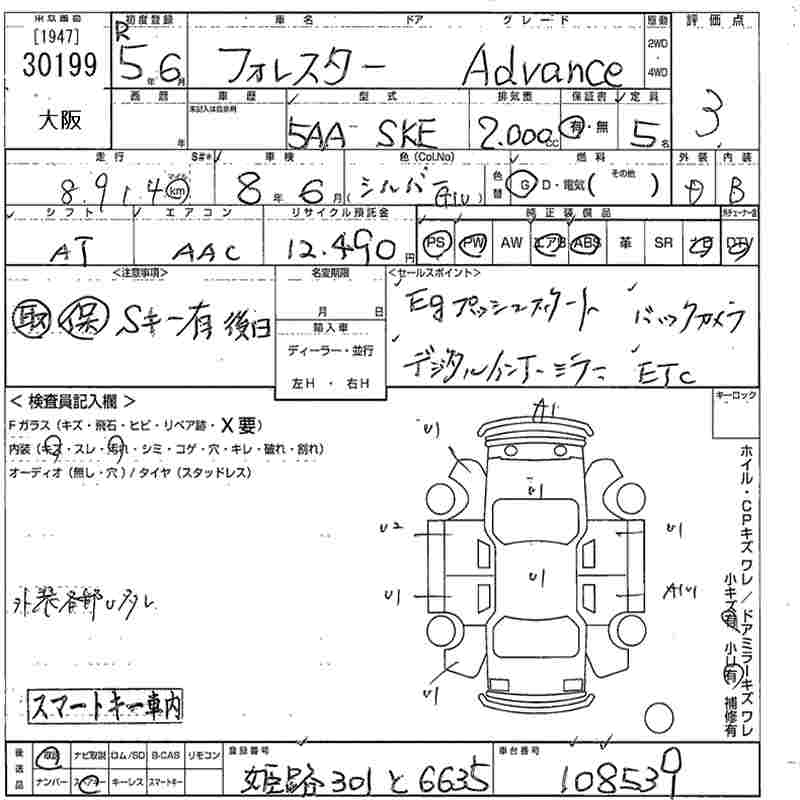 [1947]
30199
大阪
初度登録
車名
ドア
グレード
駆動
評価点
R
5年6月
フォレスター
Advance
2WD
4WD
3
西暦
車歴
型式
排気量
保証書
定員
年
未記入は自家用
5AA SKE
2.000cc
有・無
5名
走行
S#*
車検
色(Col.No)
色替
燃料
外装
内装
8.91.4
マイル
km
8年6月
シルバー
G1U
G D・電気(その他)
B
シフト
エアコン
リサイクル預託金
純正装備品
AT
AAC
12.490円
PS
PW
AW
エアB
ABS
革
SR
ナビ
DTV
<注意事項>
名変期限
<セールスポイント>
取 保 Sキー有 後日
月 日
輸入車
ディーラー・並行
左H ・ 右H
Egプッシュスタート
バックカメラ
デジタルインナーミラー
ETC
キーロック
< 検査員記入欄 >
Fガラス(キズ・飛石・ヒビ・リペア跡・X要)
内装(キズ・スレ・汚れ・シミ・コゲ・穴・キレ・破れ・割れ)
オーディオ(無し・穴)/タイヤ(スタッドレス)
A1
U1
U1
U2
U1
U1
U1
U1
外装各部U多し
スマートキー車内
ホイル・CPキズ ワレ/ドアミラーキズ ワレ
小キズ有 小U有 補修有
後送品
取説
ナビ取説
ロム/SD
B-CAS
リモコン
ナンバー
スペアキー
キーレス
スマートキー
登録番号
姫路 301 と 6635
車台番号
108539